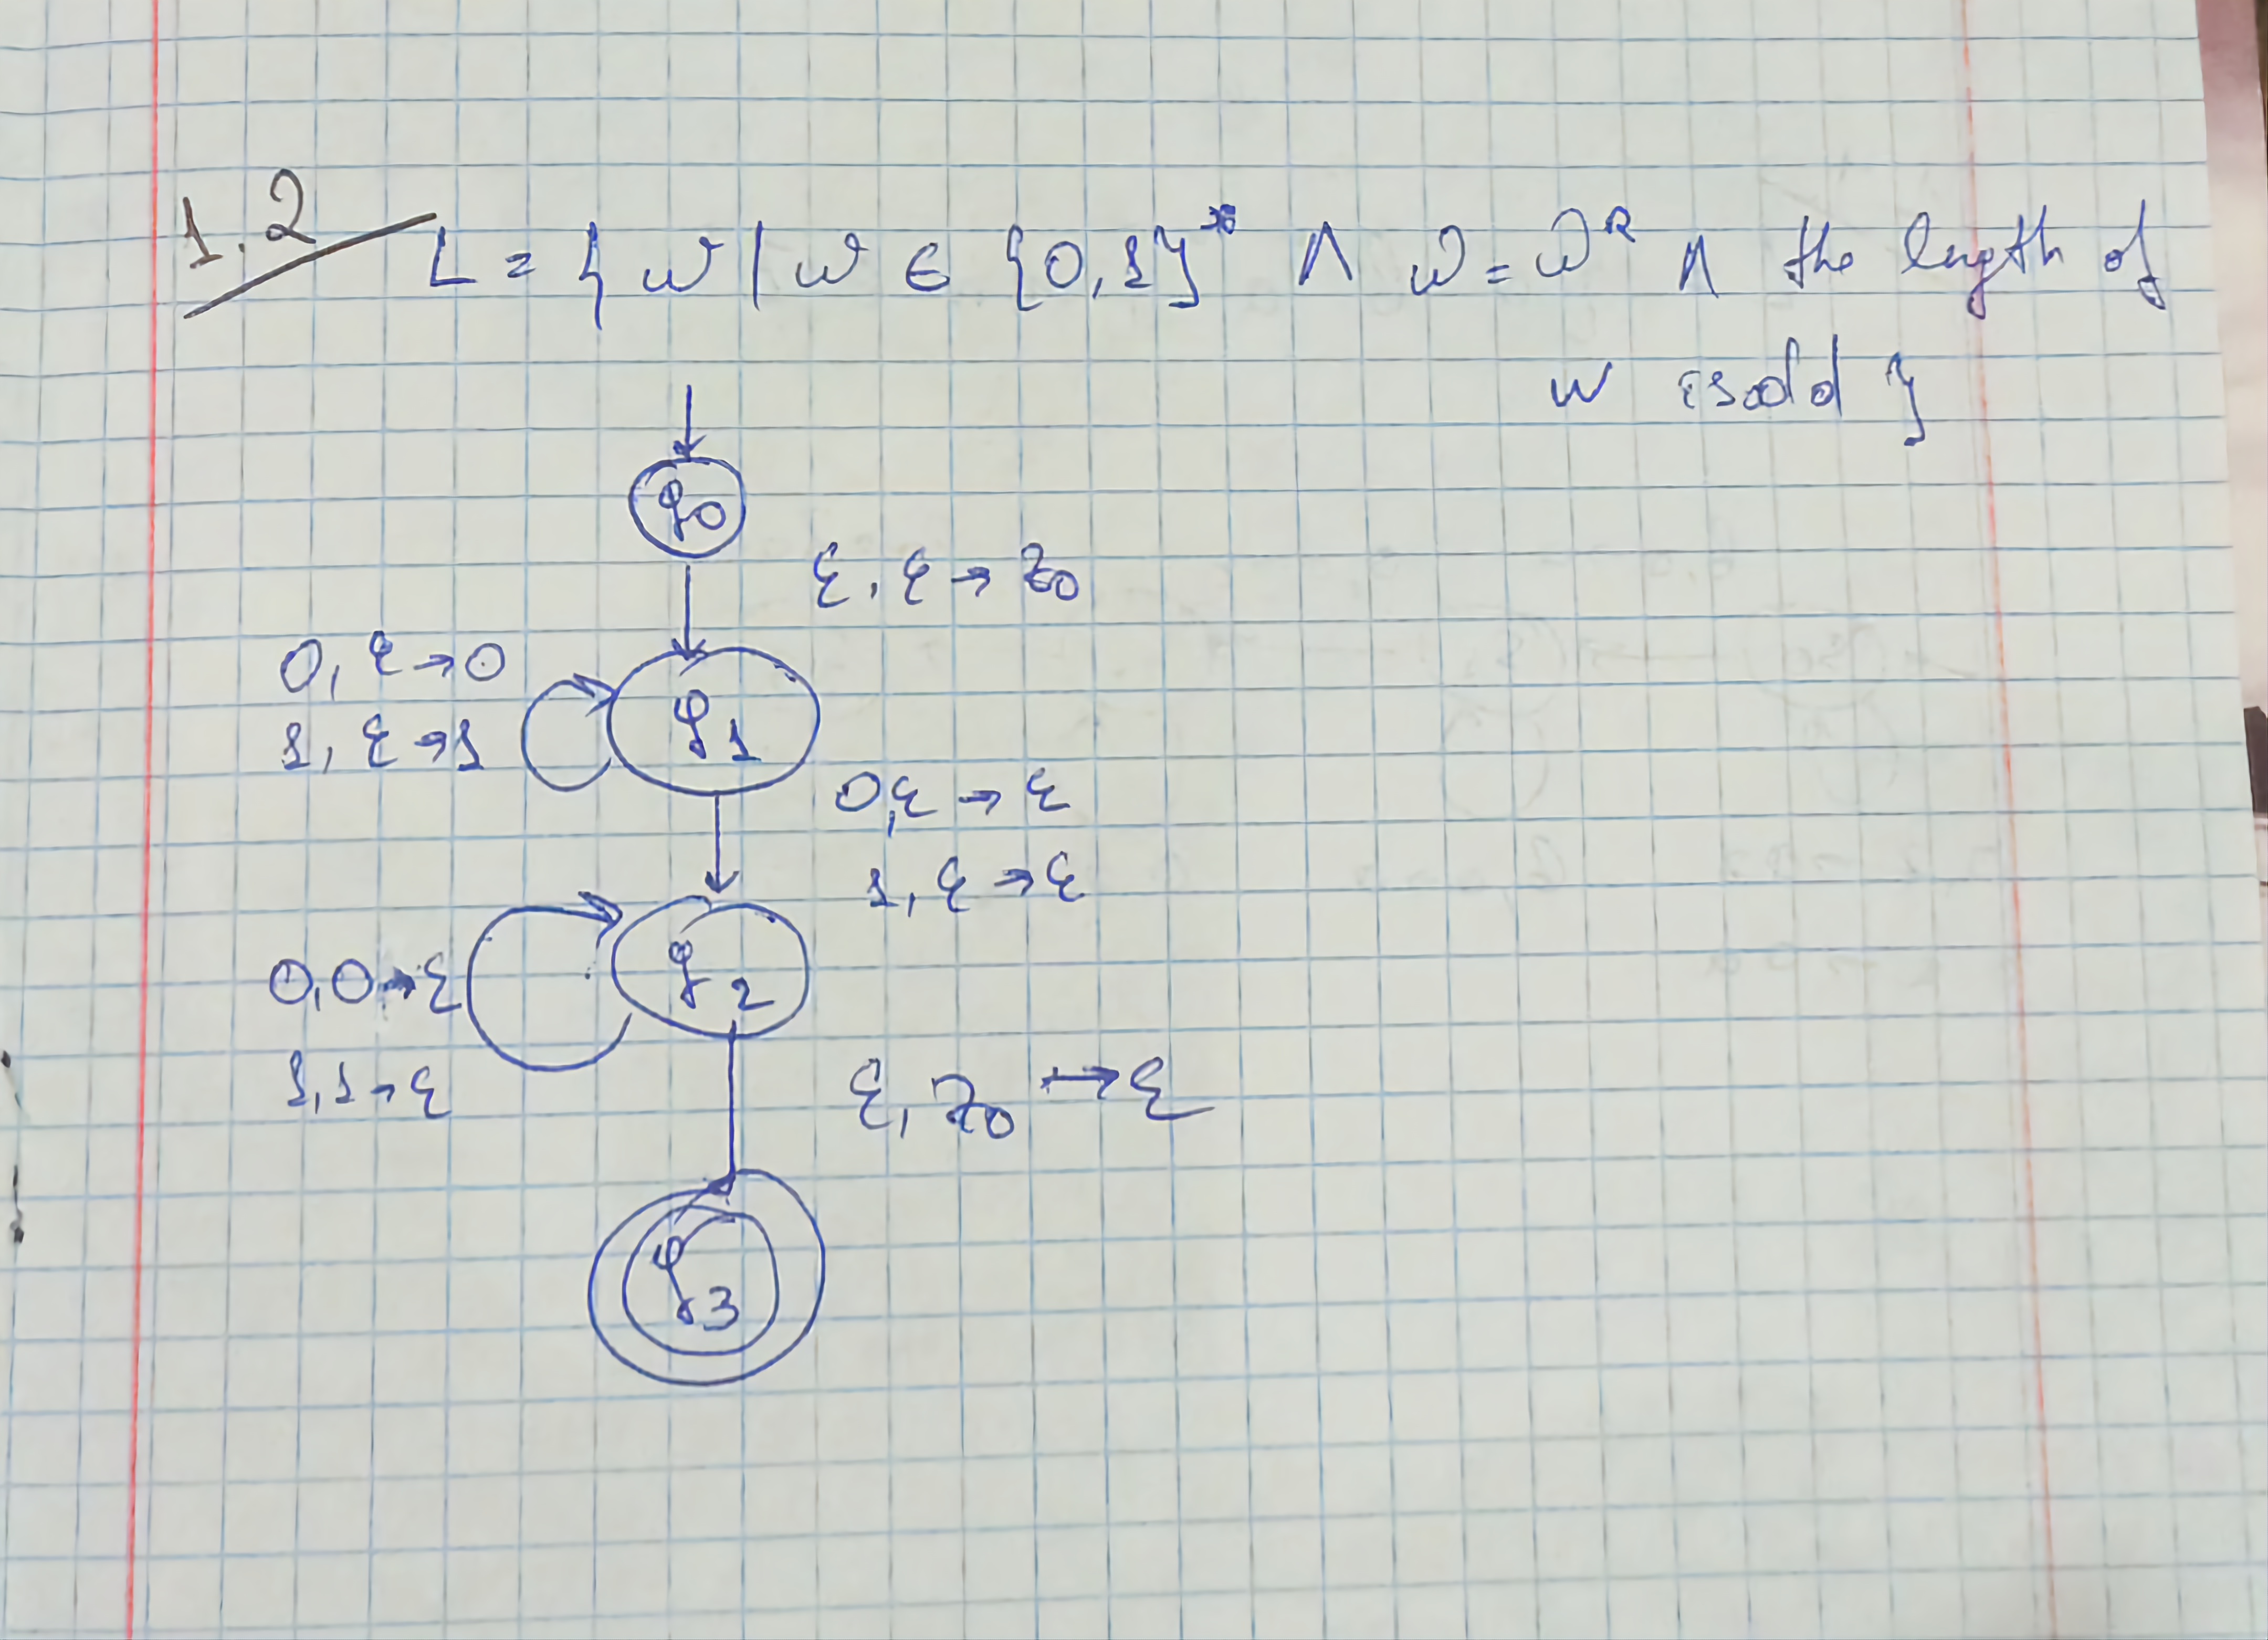 1.2 L = { w | w ∈ {0,1}* ∧ w = w^R ∧ the length of
w is odd }
q0
ε, ε → z0
0, ε → 0
1, ε → 1
q1
0, ε → ε
1, ε → ε
q2
0,0 → ε
1,1 → ε
ε, z0 → ε
q3